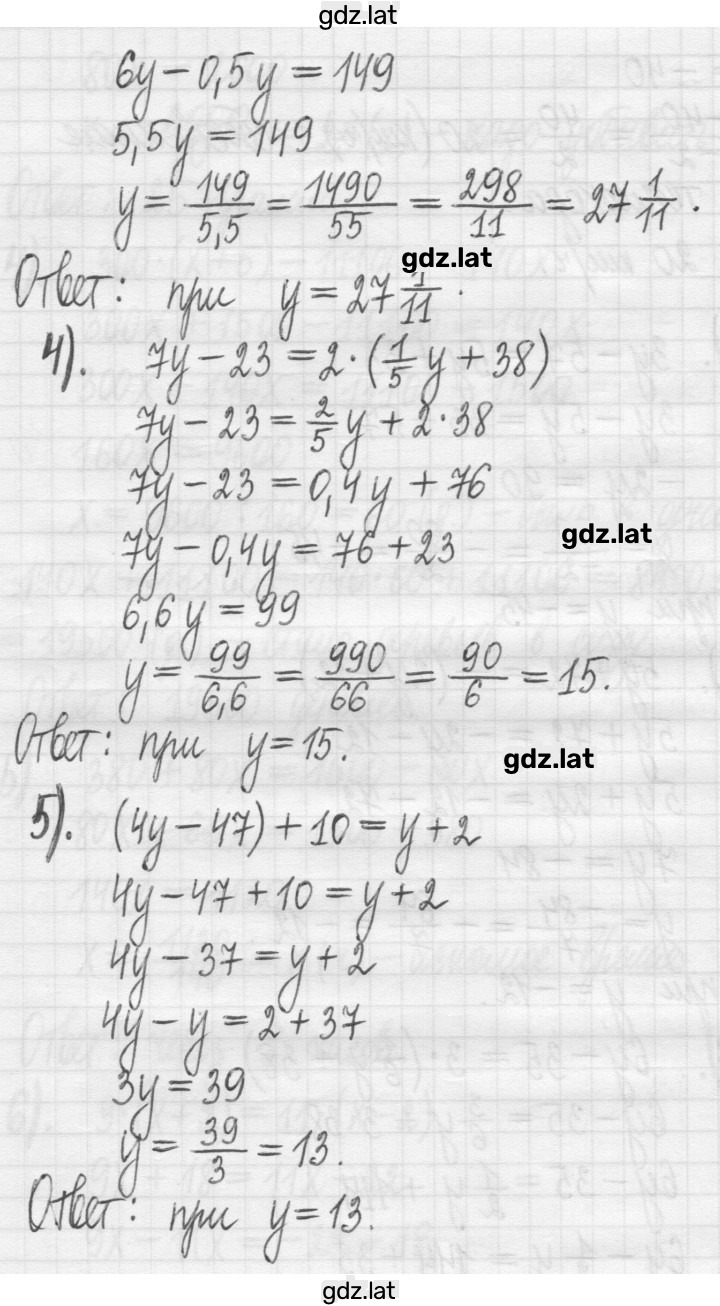 gdz.lat
6y − 0,5y = 149
5,5y = 149
y = 149/5,5 = 1490/55 = 298/11 = 27 1/11 .
gdz.lat
Ответ: при y = 27 1/11 .
4). 7y − 23 = 2·(1/5 y + 38)
7y − 23 = 2/5 y + 2·38
7y − 23 = 0,4y + 76
gdz.lat
7y − 0,4y = 76 + 23
6,6y = 99
y = 99/6,6 = 990/66 = 90/6 = 15.
Ответ: при y = 15.
gdz.lat
5). (4y − 47) + 10 = y + 2
4y − 47 + 10 = y + 2
4y − 37 = y + 2
4y − y = 2 + 37
3y = 39
y = 39/3 = 13.
Ответ: при y = 13.
gdz.lat